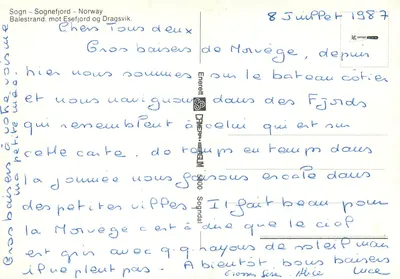 Sogn - Sognefjord - Norway
Balestrand, mot Esefjord og Dragsvik.
8 Juillet 1987
Chers Tous deux
Gros baisers de Norvège, depuis
hier nous sommes sur le bateau côtier
et nous naviguons dans des Fjords
qui ressemblent à celui qui est sur
cette carte. de temps en temps dans
la journée nous faisons escale dans
des petites villes. Il fait beau pour
la Norvège c'est à dire que le ciel
est gris avec q.q rayons de soleil mais
il ne pleut pas. A bientôt bons baisers
Alice Luce
Gros baisers à votre voisine
ma petite mère.
Enerett
5800 Sogndal